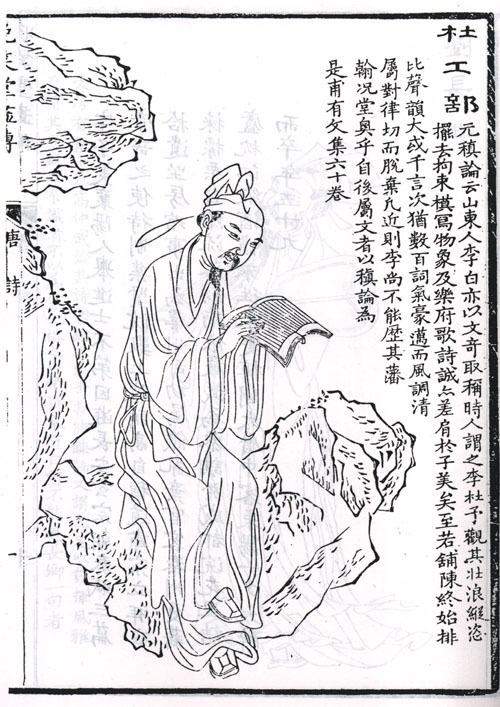 杜工部
元稹論云山東人李白亦以文竒取稱時人謂之李杜予觀其壯浪縱恣
擺去拘束模寫物象及樂府歌詩誠亦差肩於子美矣至若舖陳終始排
比聲韻大或千言次猶數百詞氣豪邁而風調清
屬對律切而脫棄凡近則李尚不能歷其藩
翰况堂奧乎自後屬文者以稹論為
是甫有文集六十卷
晚笑堂畫傳
唐詩
一